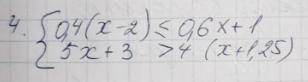 4. { 0,4(x-2) ≤ 0,6x+1
5x+3 > 4 (x+1,25)